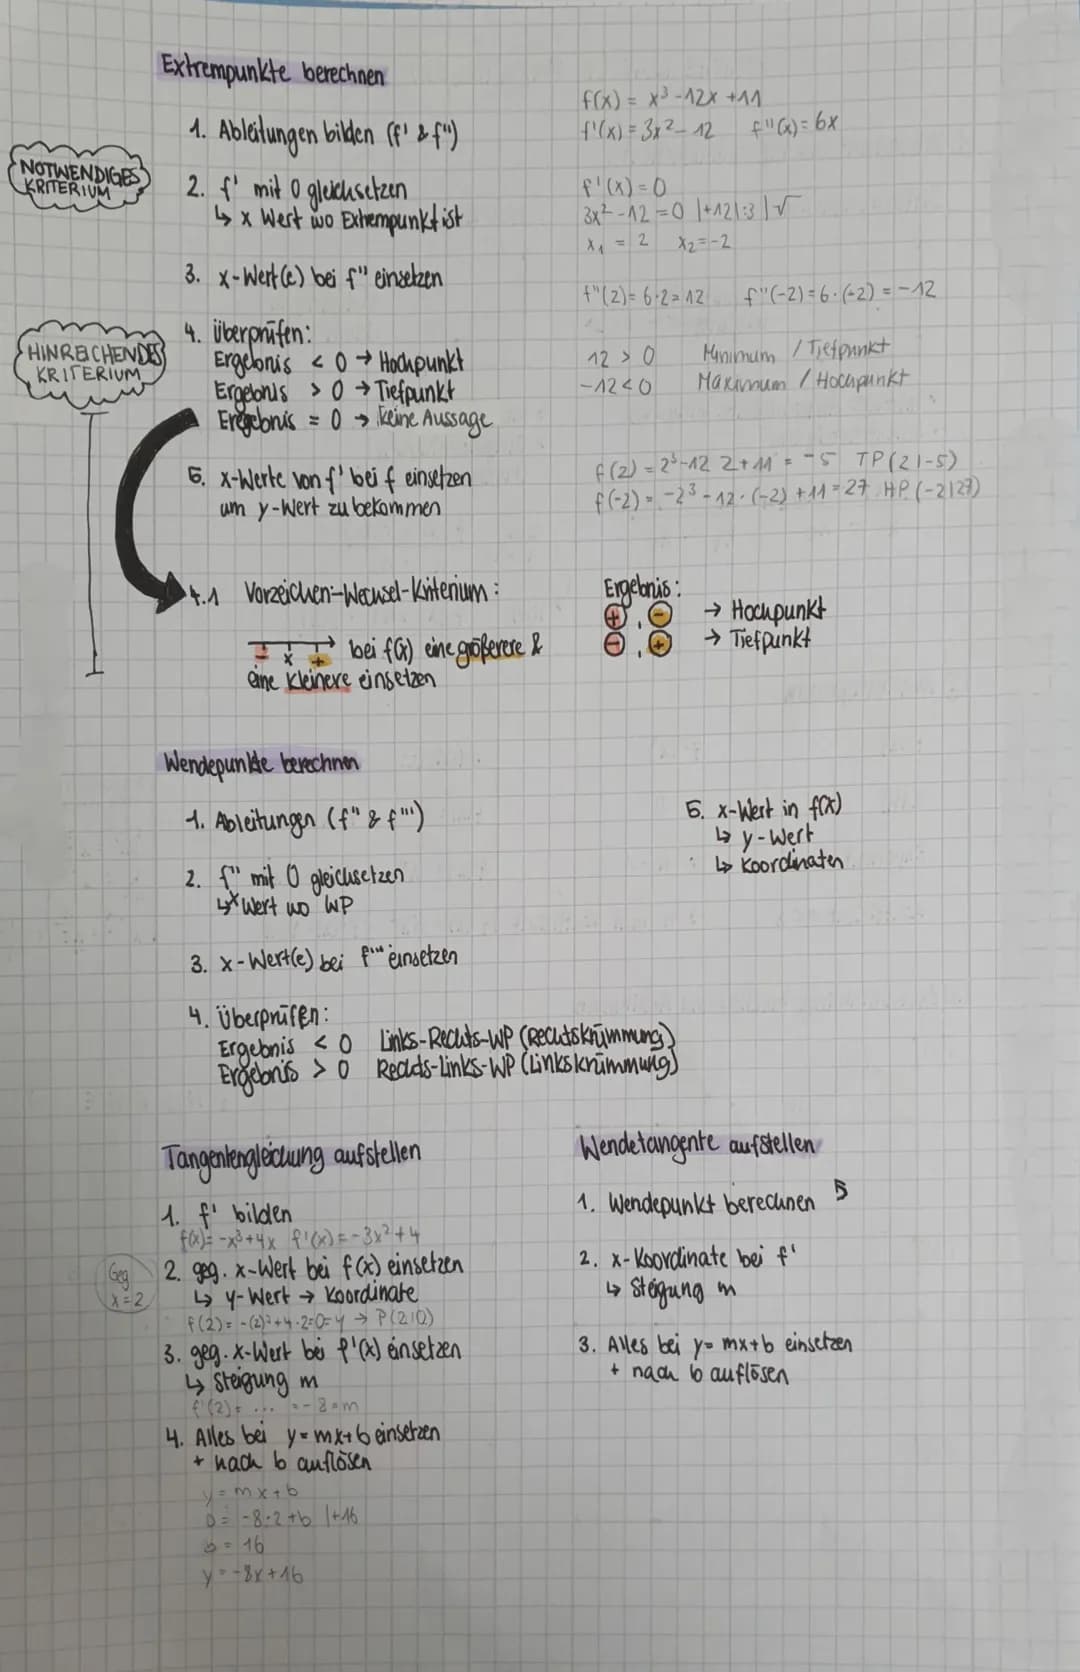 Extrempunkte berechnen
f(x) = x³ -12x +11
1. Ableitungen bilden (f' & f'')
f'(x) = 3x² - 12 f''(x) = 6x
NOTWENDIGES
KRITERIUM
2. f' mit 0 gleichsetzen
↳ x Wert wo Extrempunkt ist
f'(x) = 0
3x² -12 = 0 |+12 |:3 |√
x₁ = 2 x₂ = -2
3. x-Wert(e) bei f'' einsetzen
f''(2) = 6·2 = 12 f''(-2) = 6·(-2) = -12
HINREICHENDES
KRITERIUM
4. Überprüfen:
Ergebnis < 0 → Hochpunkt
Ergebnis > 0 → Tiefpunkt
Eregebnis = 0 → keine Aussage
12 > 0 Minimum / Tiefpunkt
-12 < 0 Maximum / Hochpunkt
5. x-Werte von f' bei f einsetzen
um y-Wert zu bekommen
f(2) = 2³-12 2 + 11 = -5 TP(2|-5)
f(-2) = -2³ - 12·(-2) + 11 = 27 HP(-2|27)
4.1 Vorzeichen-Wechsel-Kriterium:
- x + bei f(x) eine größerere &
eine kleinere einsetzen
Ergebnis:
+ , - → Hochpunkt
- , + → Tiefpunkt
Wendepunkte berechnen
1. Ableitungen (f'' & f''')
2. f'' mit 0 gleichsetzen
↳ x Wert wo WP
3. x-Wert(e) bei f''' einsetzen
4. Überprüfen:
Ergebnis < 0 Links-Rechts-WP (Rechtskrümmung)
Ergebnis > 0 Rechts-Links-WP (Linkskrümmung)
5. x-Wert in f(x)
↳ y-Wert
↳ Koordinaten
Tangentengleichung aufstellen
1. f' bilden
f(x) = -x³+4x f'(x) = -3x²+4
Geg
x = 2
2. geg. x-Wert bei f(x) einsetzen
↳ y-Wert → Koordinate
f(2) = -(2)³+4·2=0=y → P(2|0)
3. geg. x-Wert bei f'(x) einsetzen
↳ Steigung m
f'(2) = ... = -8 = m
4. Alles bei y = mx+b einsetzen
+ nach b auflösen
y = mx + b
0 = -8·2+b |+16
b = 16
y = -8x+16
Wendetangente aufstellen
1. Wendepunkt berechnen 5
2. x-Koordinate bei f'
↳ Steigung m
3. Alles bei y = mx+b einsetzen
+ nach b auflösen